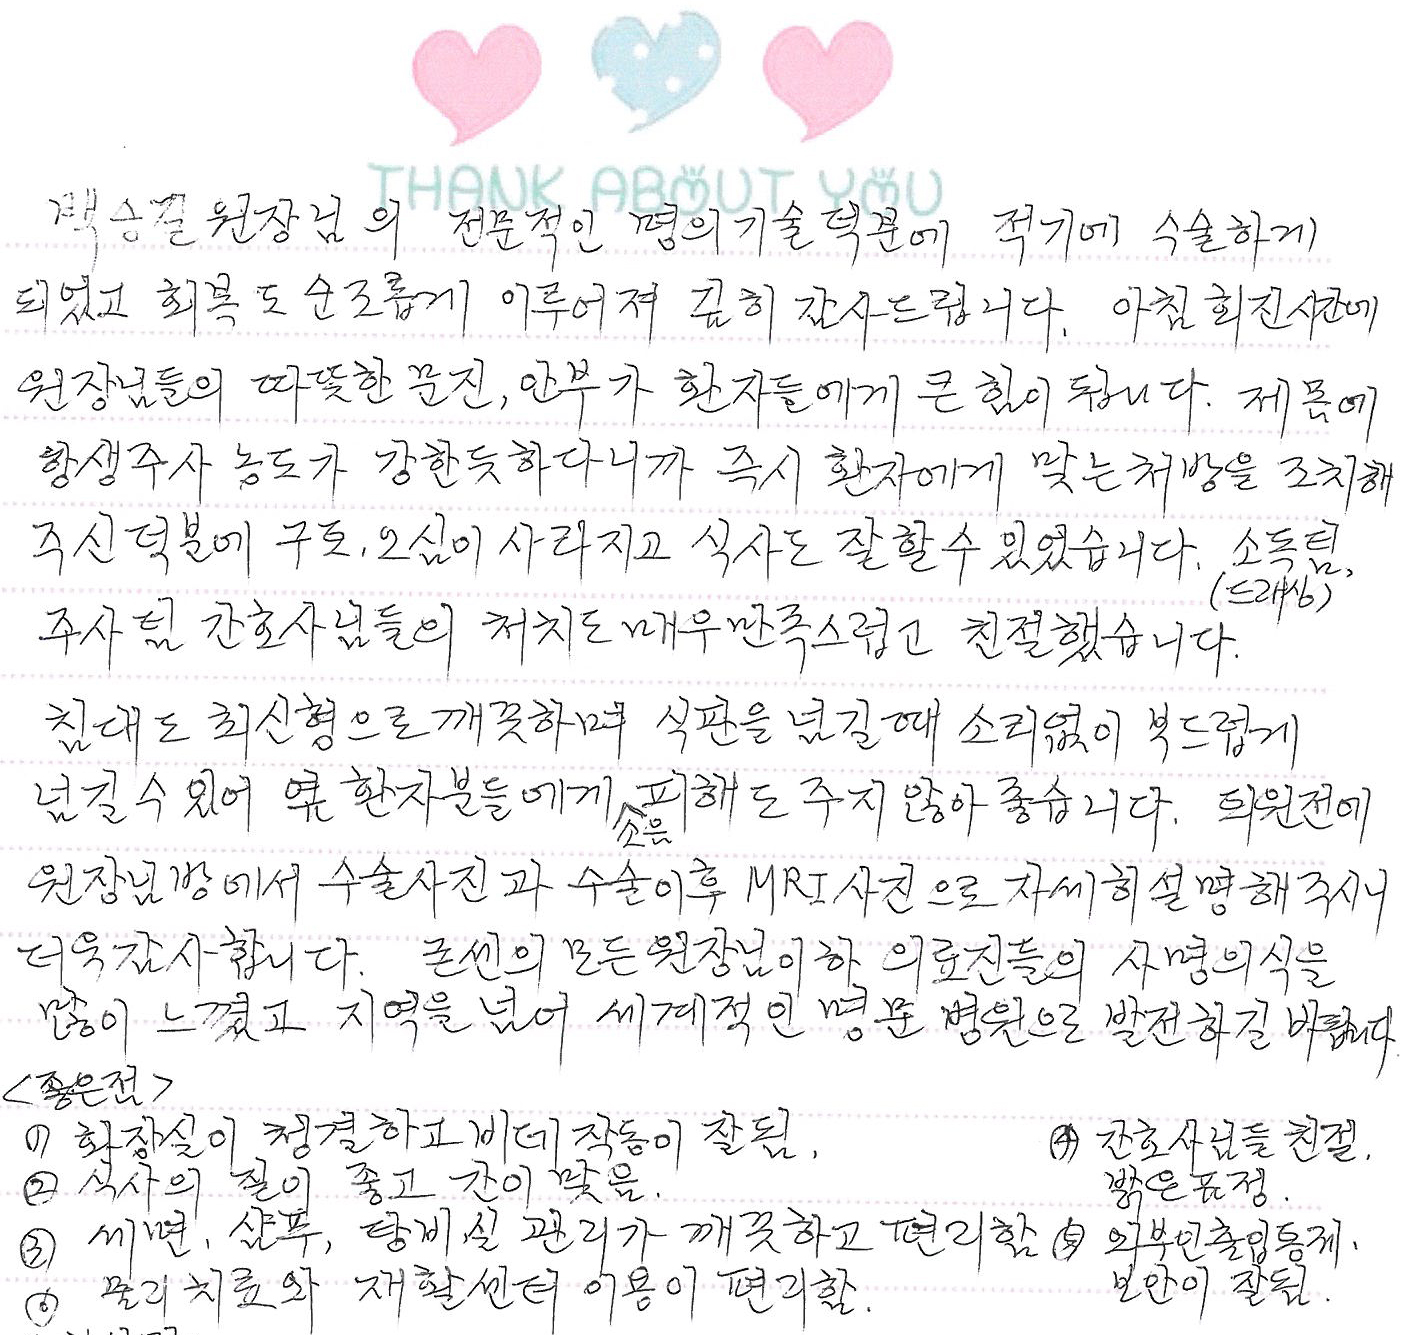 THANK ABOUT YOU
백승길 원장님의 전문적인 명의기술덕분에 적기에 수술하게
되었고 회복도 순조롭게 이루어져 깊히 감사드립니다. 아침 회진시간에
원장님들의 따뜻한 문진, 안부가 환자들에게 큰 힘이 됩니다. 제 몸에
항생주사 농도가 강한듯하다니까 즉시 환자에게 맞는 처방을 조치해
주신 덕분에 구토, 오심이 사라지고 식사도 잘 할 수 있었습니다. 소독팀,
(드레싱)
주사팀 간호사님들의 처치도 매우 만족스럽고 친절했습니다.
침대도 최신형으로 깨끗하며 식판을 넘길때 소리없이 부드럽게
넘길 수 있어 옆 환자분들에게 피해도 주지 않아 좋습니다. 퇴원전에
소음
원장님방에서 수술사진과 수술이후 MRI 사진으로 자세히 설명해주시니
더욱 감사합니다. 굳센의 모든 원장님이하 의료진들의 사명의식을
많이 느꼈고 지역을 넘어 세계적인 명문 병원으로 발전하길 바랍니다
<좋은점>
① 화장실이 청결하고 비데 작동이 잘됨.
② 식사의 질이 좋고 간이 맞음.
③ 세면, 샴푸, 탕비실 관리가 깨끗하고 편리함
⑥ 물리치료와 재활센터 이용이 편리함.
④ 간호사님들 친절.
밝은 표정.
⑤ 외부인출입통제.
보안이 잘됨.